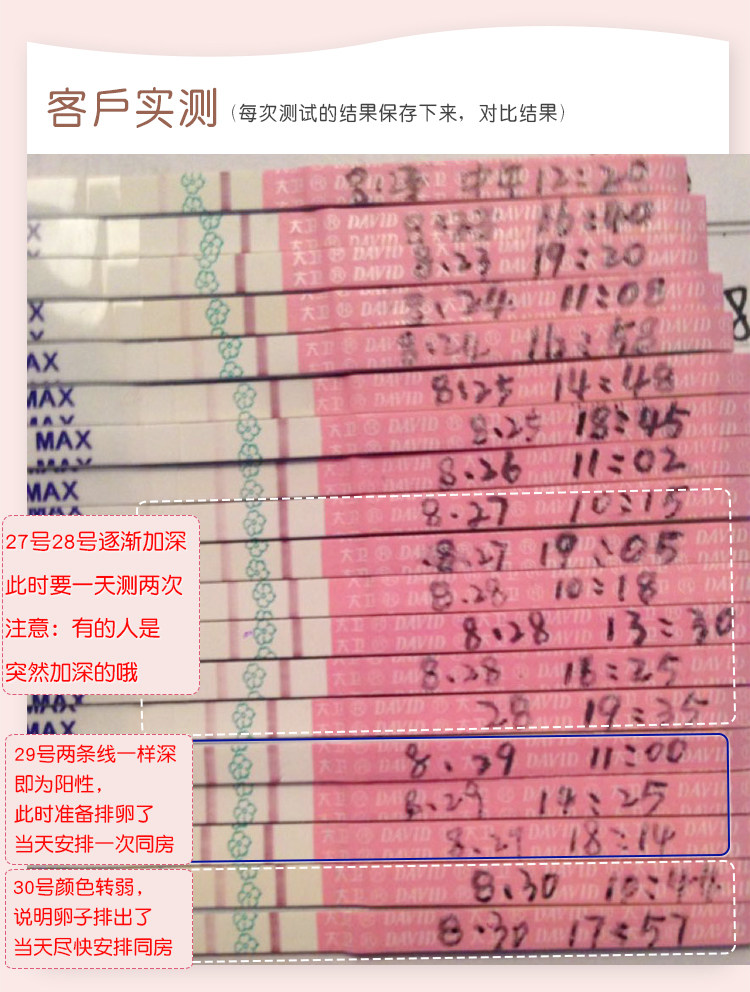 客戶实测（每次测试的结果保存下来，对比结果）
大卫 DAVID 中午12:20
DAVID 16:40
8.23 19:20
8.24 11:08
8.24 16:58
8.25 14:48
8.25 18:45
8.26 11:02
8.27 10:15
8.27 19:05
8.28 10:18
8.28 13:30
8.28 18:25
28 19:25
8.29 11:00
8.29 14:25
8.29 18:14
8.30 10:44
8.30 17:57
AX
MAX
MAX
MAX
27号28号逐渐加深
此时要一天测两次
注意：有的人是
突然加深的哦
29号两条线一样深
即为阳性，
此时准备排卵了
当天安排一次同房
30号颜色转弱，
说明卵子排出了
当天尽快安排同房